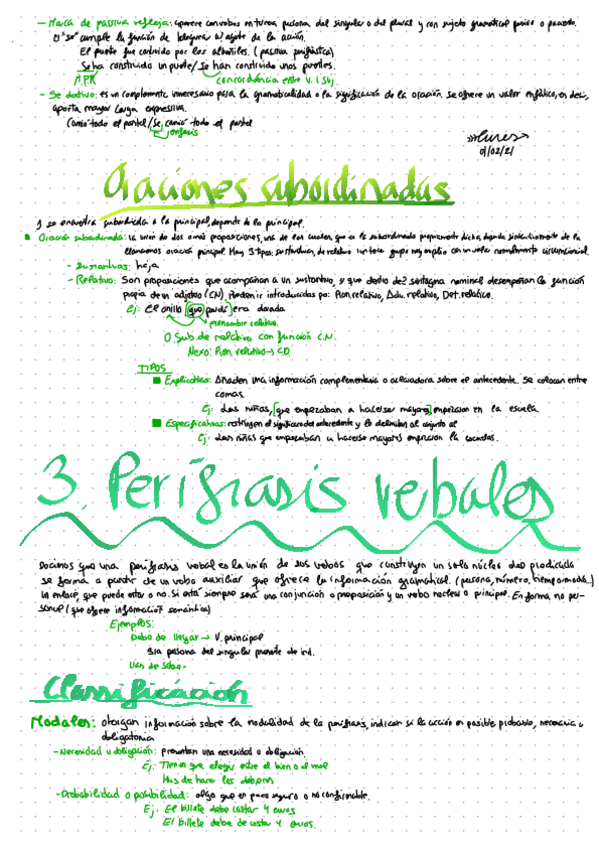 - Marca de pasiva refleja: aparece con verbos en tercera persona del singular o del plural y con sujeto gramatical
El "se" cumple la función de bloquear al agente de la acción.
El puente fue construido por los albañiles. (pasiva perifrástica)
Se ha construido un puente/Se han construido unos puentes.
MPR concordancia entre V. (Suj.
- Se dativo: es un complemento innecesario para la gramaticalidad o la significación de la oración. se ofrece un valor enfático, es decir,
aporta mayor carga expresiva.
Comió todo el pastel/Se comió todo el pastel
énfasis
Lunes
01/02/21
Oraciones subordinadas
se encuentra subordinada a la principal, depende de la principal.
Oración subordinada: La unión de dos o más proposiciones, una de las cuales, que es la subordinada propiamente dicha, depende sintácticamente de la
llamamos oración principal. Hay 3 tipos: sustantivas, de relativo
- Sustantivas: hoja
- Relativo: Son proposiciones que acompañan a un sustantivo, y que dentro del sintagma nominal desempeñan la función
propia de un adjetivo (CN). Pueden ir introducidas por: Pron. relativo, Adv. relativo, Det. relativo.
Ej: El anillo [que perdí] era dorado
pronombre relativo.
O. Sub de relativo con función C.N.
Nexo: Pron relativo → CD.
TIPOS
Explicativas: Añaden una información complementaria o aclaradora sobre el antecedente. Se colocan entre
comas.
Ej: Las niñas, [que empezaban a hacerse mayores] empezaron en la escuela.
Especificativas: restringen el significado del antecedente y lo delimitan al conjunto al
Ej: Las niñas que empezaban a hacerse mayores empezaron la escuela.
3. Perífrasis verbales
Decimos que una perífrasis verbal es la unión de dos verbos que constituyen un solo núcleo del predicado
se forma a partir de un verbo auxiliar que ofrece la información gramatical. (persona, número, tiempo, modo...)
Un enlace, que puede estar o no. Si está siempre será una conjunción o preposición y un verbo nuclear o principal. En forma no per-
sonal (que ofrece información semántica)
Ejemplos:
Debo de llegar → V. principal
persona del singular presente de ind.
Has de saber.
Clasificación
Modales: otorgan información sobre la modalidad de la perífrasis, indican si la acción es posible, probable, necesaria u
obligatoria
- Necesidad u obligación: presentan una necesidad o obligación.
Ej: Tienes que elegir entre el bien o el mal
Has de hacer los deberes
- Probabilidad o posibilidad: algo que es poco seguro o no confirmable.
Ej: El billete debe costar 4 euros
El billete debe de costar 4 euros.